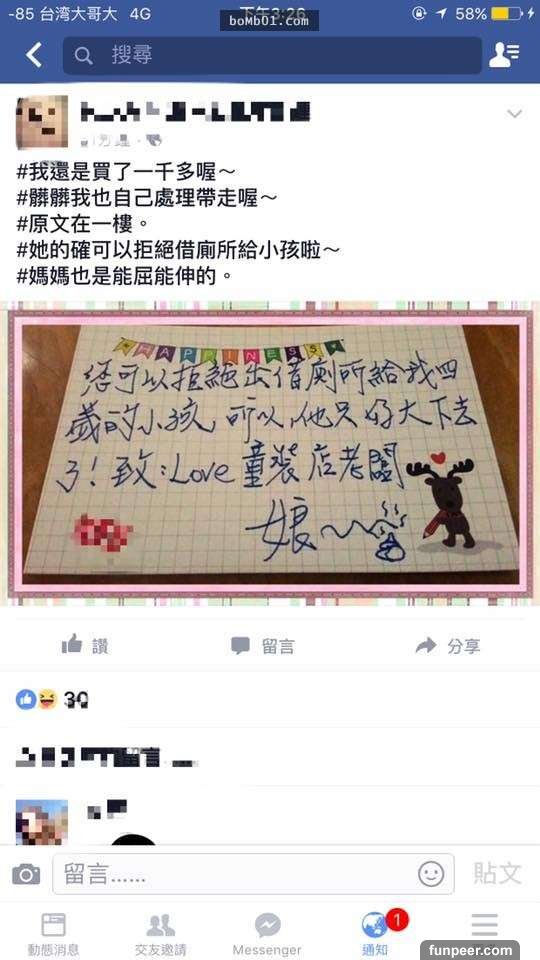 -85 台湾大哥大 4G
boMb01.com
58%
搜尋
#我還是買了一千多喔～
#髒髒我也自己處理帶走喔～
#原文在一樓。
#她的確可以拒絕借廁所給小孩啦～
#媽媽也是能屈能伸的。
HAPPINESS
您可以拒絕出借廁所給我四
歲的小孩,所以,他只好大下去
了!致:Love 童裝店老闆
娘～～
讚
留言
分享
30
留言
留言......
貼文
動態消息
交友邀請
Messenger
通知
1
funpeer.com